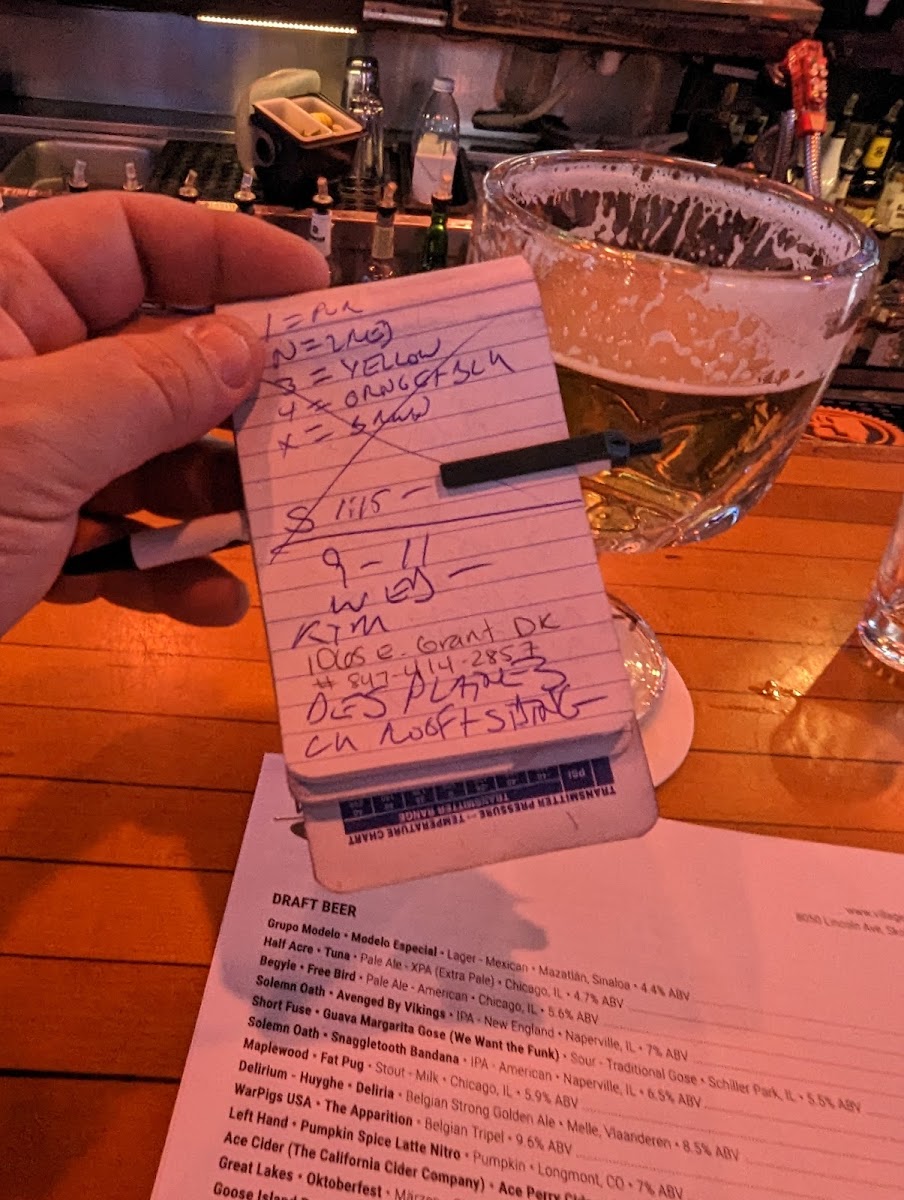 1 = PUR
N = 2 RED
3 = YELLOW
4 = ORNGE + BLK
X =
8 1:15 -
9 - 11
WED -
KIM
1065 e. Grant DR
# 847-414-2857
DES PLAINES
CH ROOF + SIDING
PSI
TRANSMITTER RANGE
TRANSMITTER PRESSURE — TEMPERATURE CHART
DRAFT BEER
www.village
8050 Lincoln Ave, Sko
Grupo Modelo • Modelo Especial • Lager - Mexican • Mazatlán, Sinaloa • 4.4% ABV
Half Acre • Tuna • Pale Ale - XPA (Extra Pale) • Chicago, IL • 4.7% ABV
Begyle • Free Bird • Pale Ale - American • Chicago, IL • 5.6% ABV
Solemn Oath • Avenged By Vikings • IPA - New England • Naperville, IL • 7% ABV
Short Fuse • Guava Margarita Gose (We Want the Funk) • Sour - Traditional Gose • Schiller Park, IL • 5.5% ABV
Solemn Oath • Snaggletooth Bandana • IPA - American • Naperville, IL • 6.5% ABV
Maplewood • Fat Pug • Stout - Milk • Chicago, IL • 5.9% ABV
Delirium - Huyghe • Deliria • Belgian Strong Golden Ale • Melle, Vlaanderen • 8.5% ABV
WarPigs USA • The Apparition • Belgian Tripel • 9.6% ABV
Left Hand • Pumpkin Spice Latte Nitro • Pumpkin • Longmont, CO • 7% ABV
Ace Cider (The California Cider Company) • Ace Perry
Great Lakes • Oktoberfest • Märzen
Goose Island